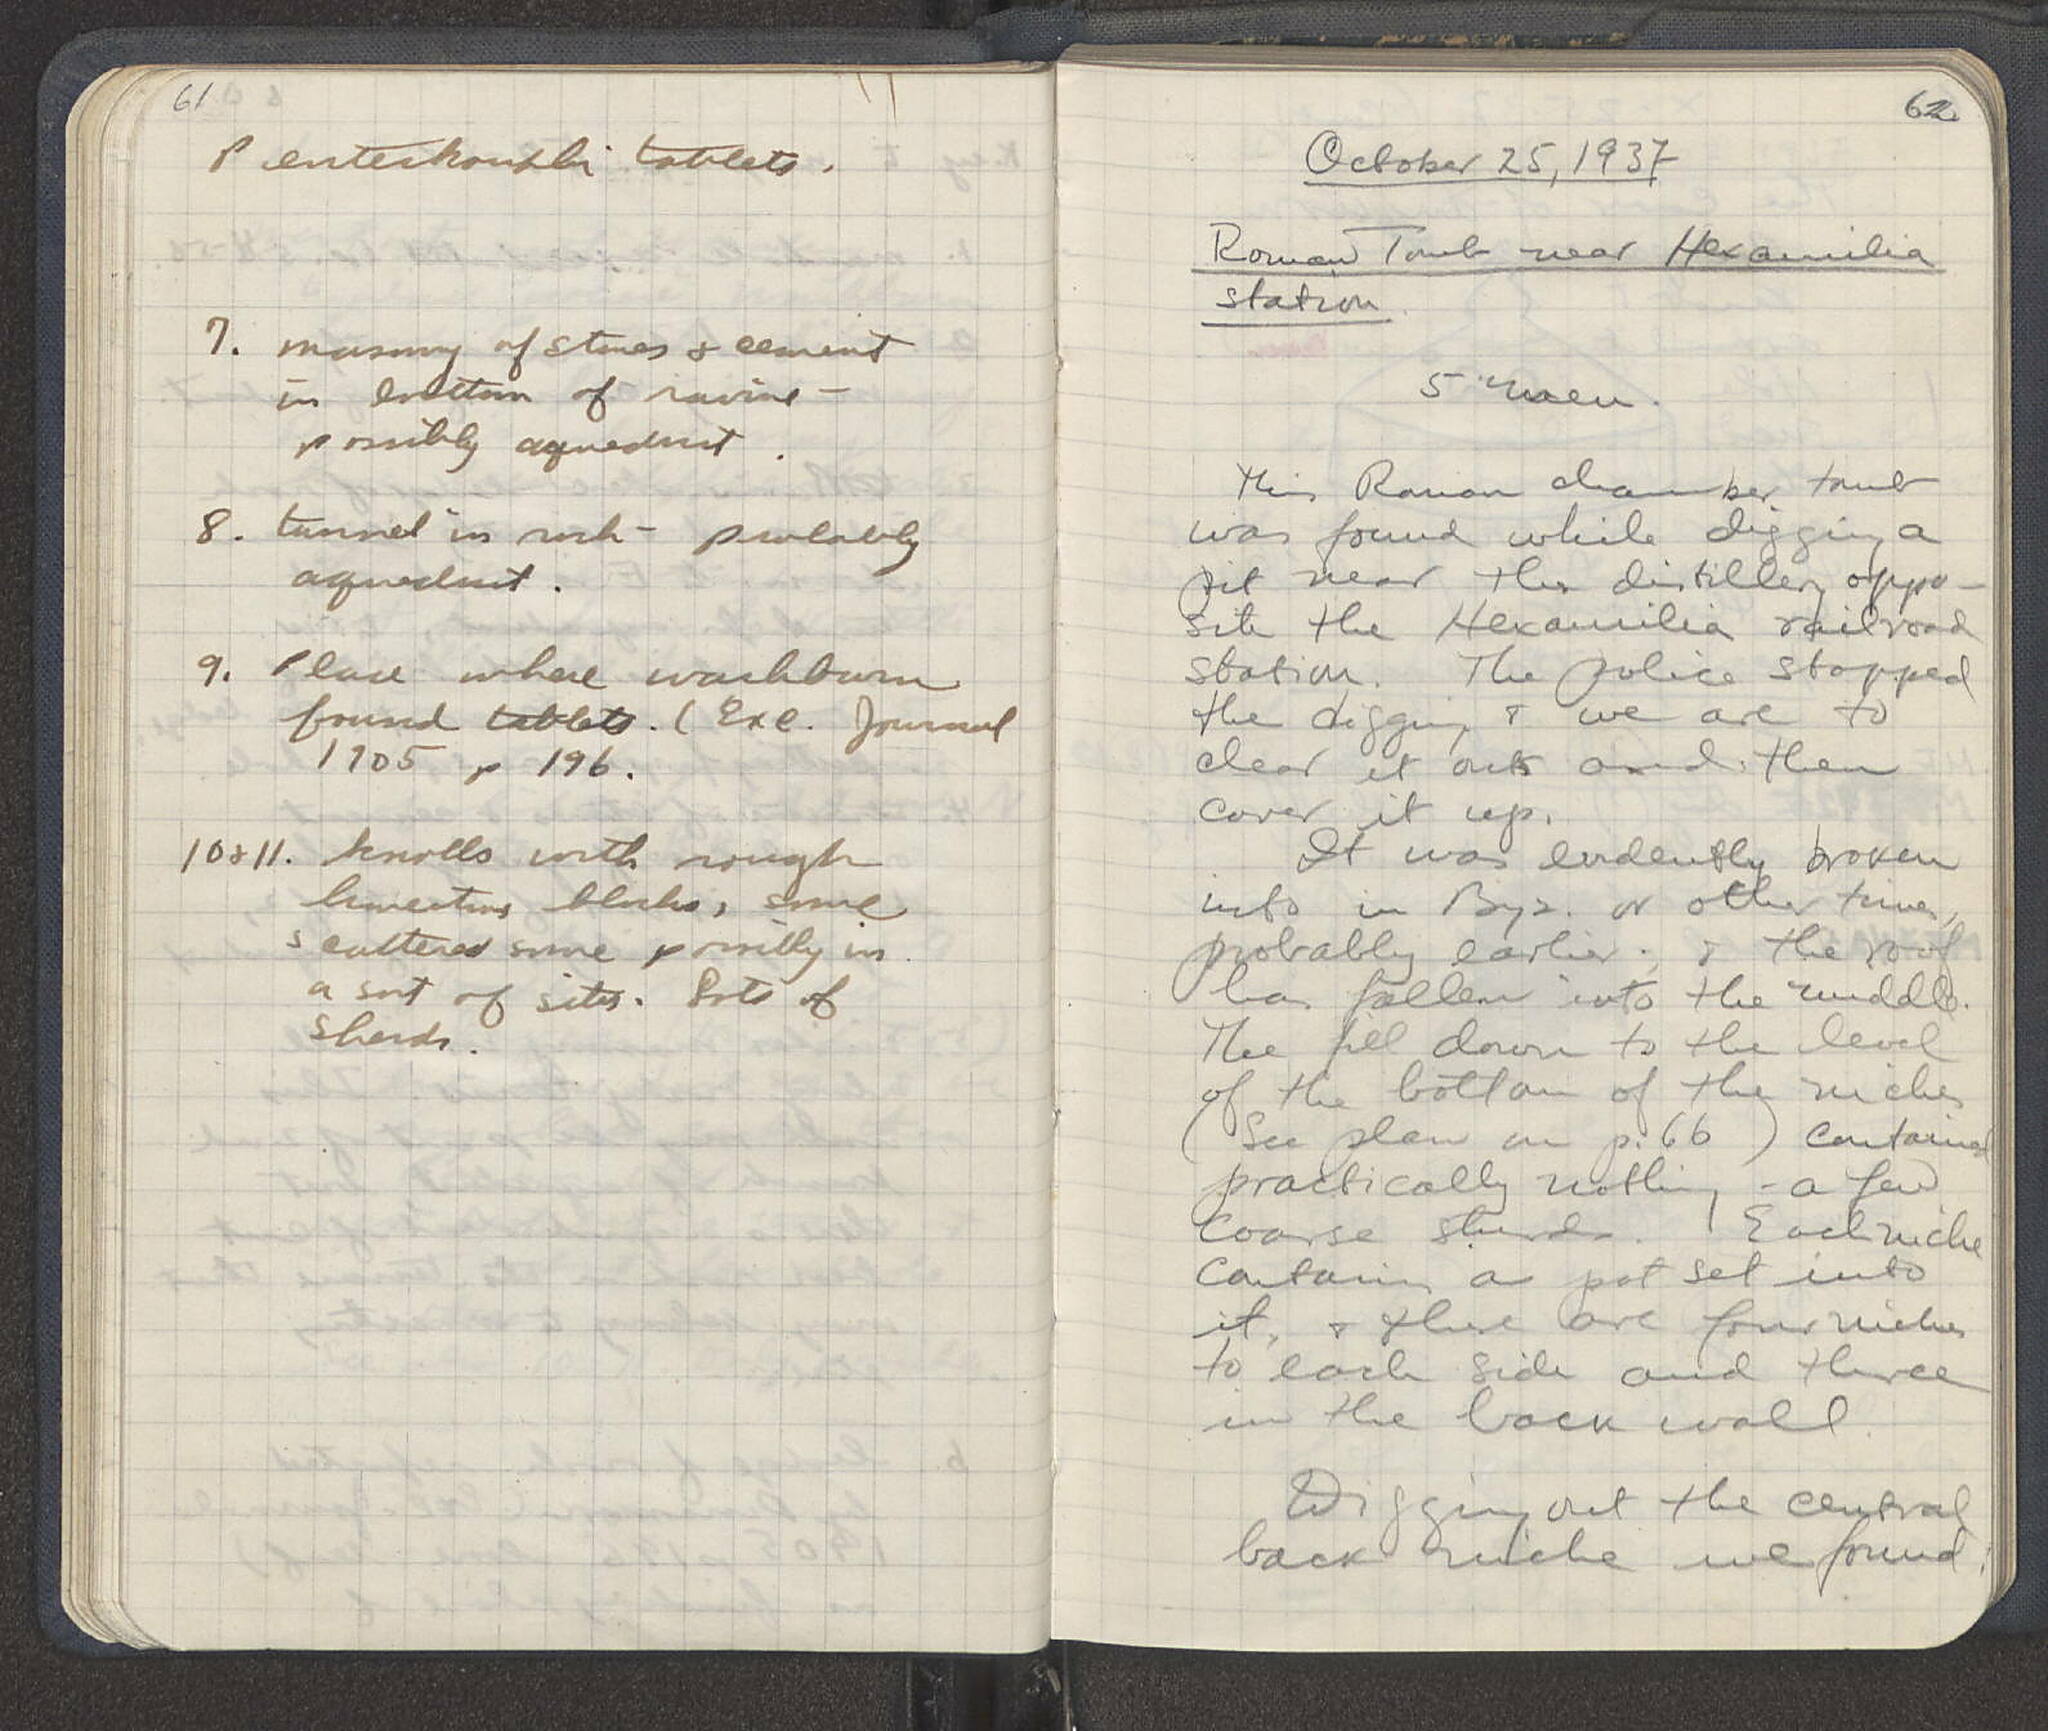 61
Penteskouphi tablets.
7. masonry of stones & cement
in bottom of ravine –
possibly aqueduct.
8. tunnel in rock – probably
aqueduct.
9. Place where washburn
found tablets. (Exc. Journal
1905 p 196.
10 & 11. knolls with rough
limestone blocks, some
scattered some possibly in
a sort of situ. Lots of
sherds.
62
October 25, 1937
Roman Tomb near Hexamilia
station.
5 men.
This Roman chamber tomb
was found while digging a
pit near the distillery oppo-
site the Hexamilia railroad
station. The police stopped
the digging & we are to
clear it out and then
cover it up.
It was evidently broken
into in Byz. or other times,
probably earlier; & the roof
has fallen into the middle.
The fill down to the level
of the bottom of the niches
(See plan on p. 66) contained
practically nothing – a few
coarse sherds. | Each niche
contains a pot set into
it, & there are four niches
to each side and three
in the back wall.
Digging out the central
back niche we found: